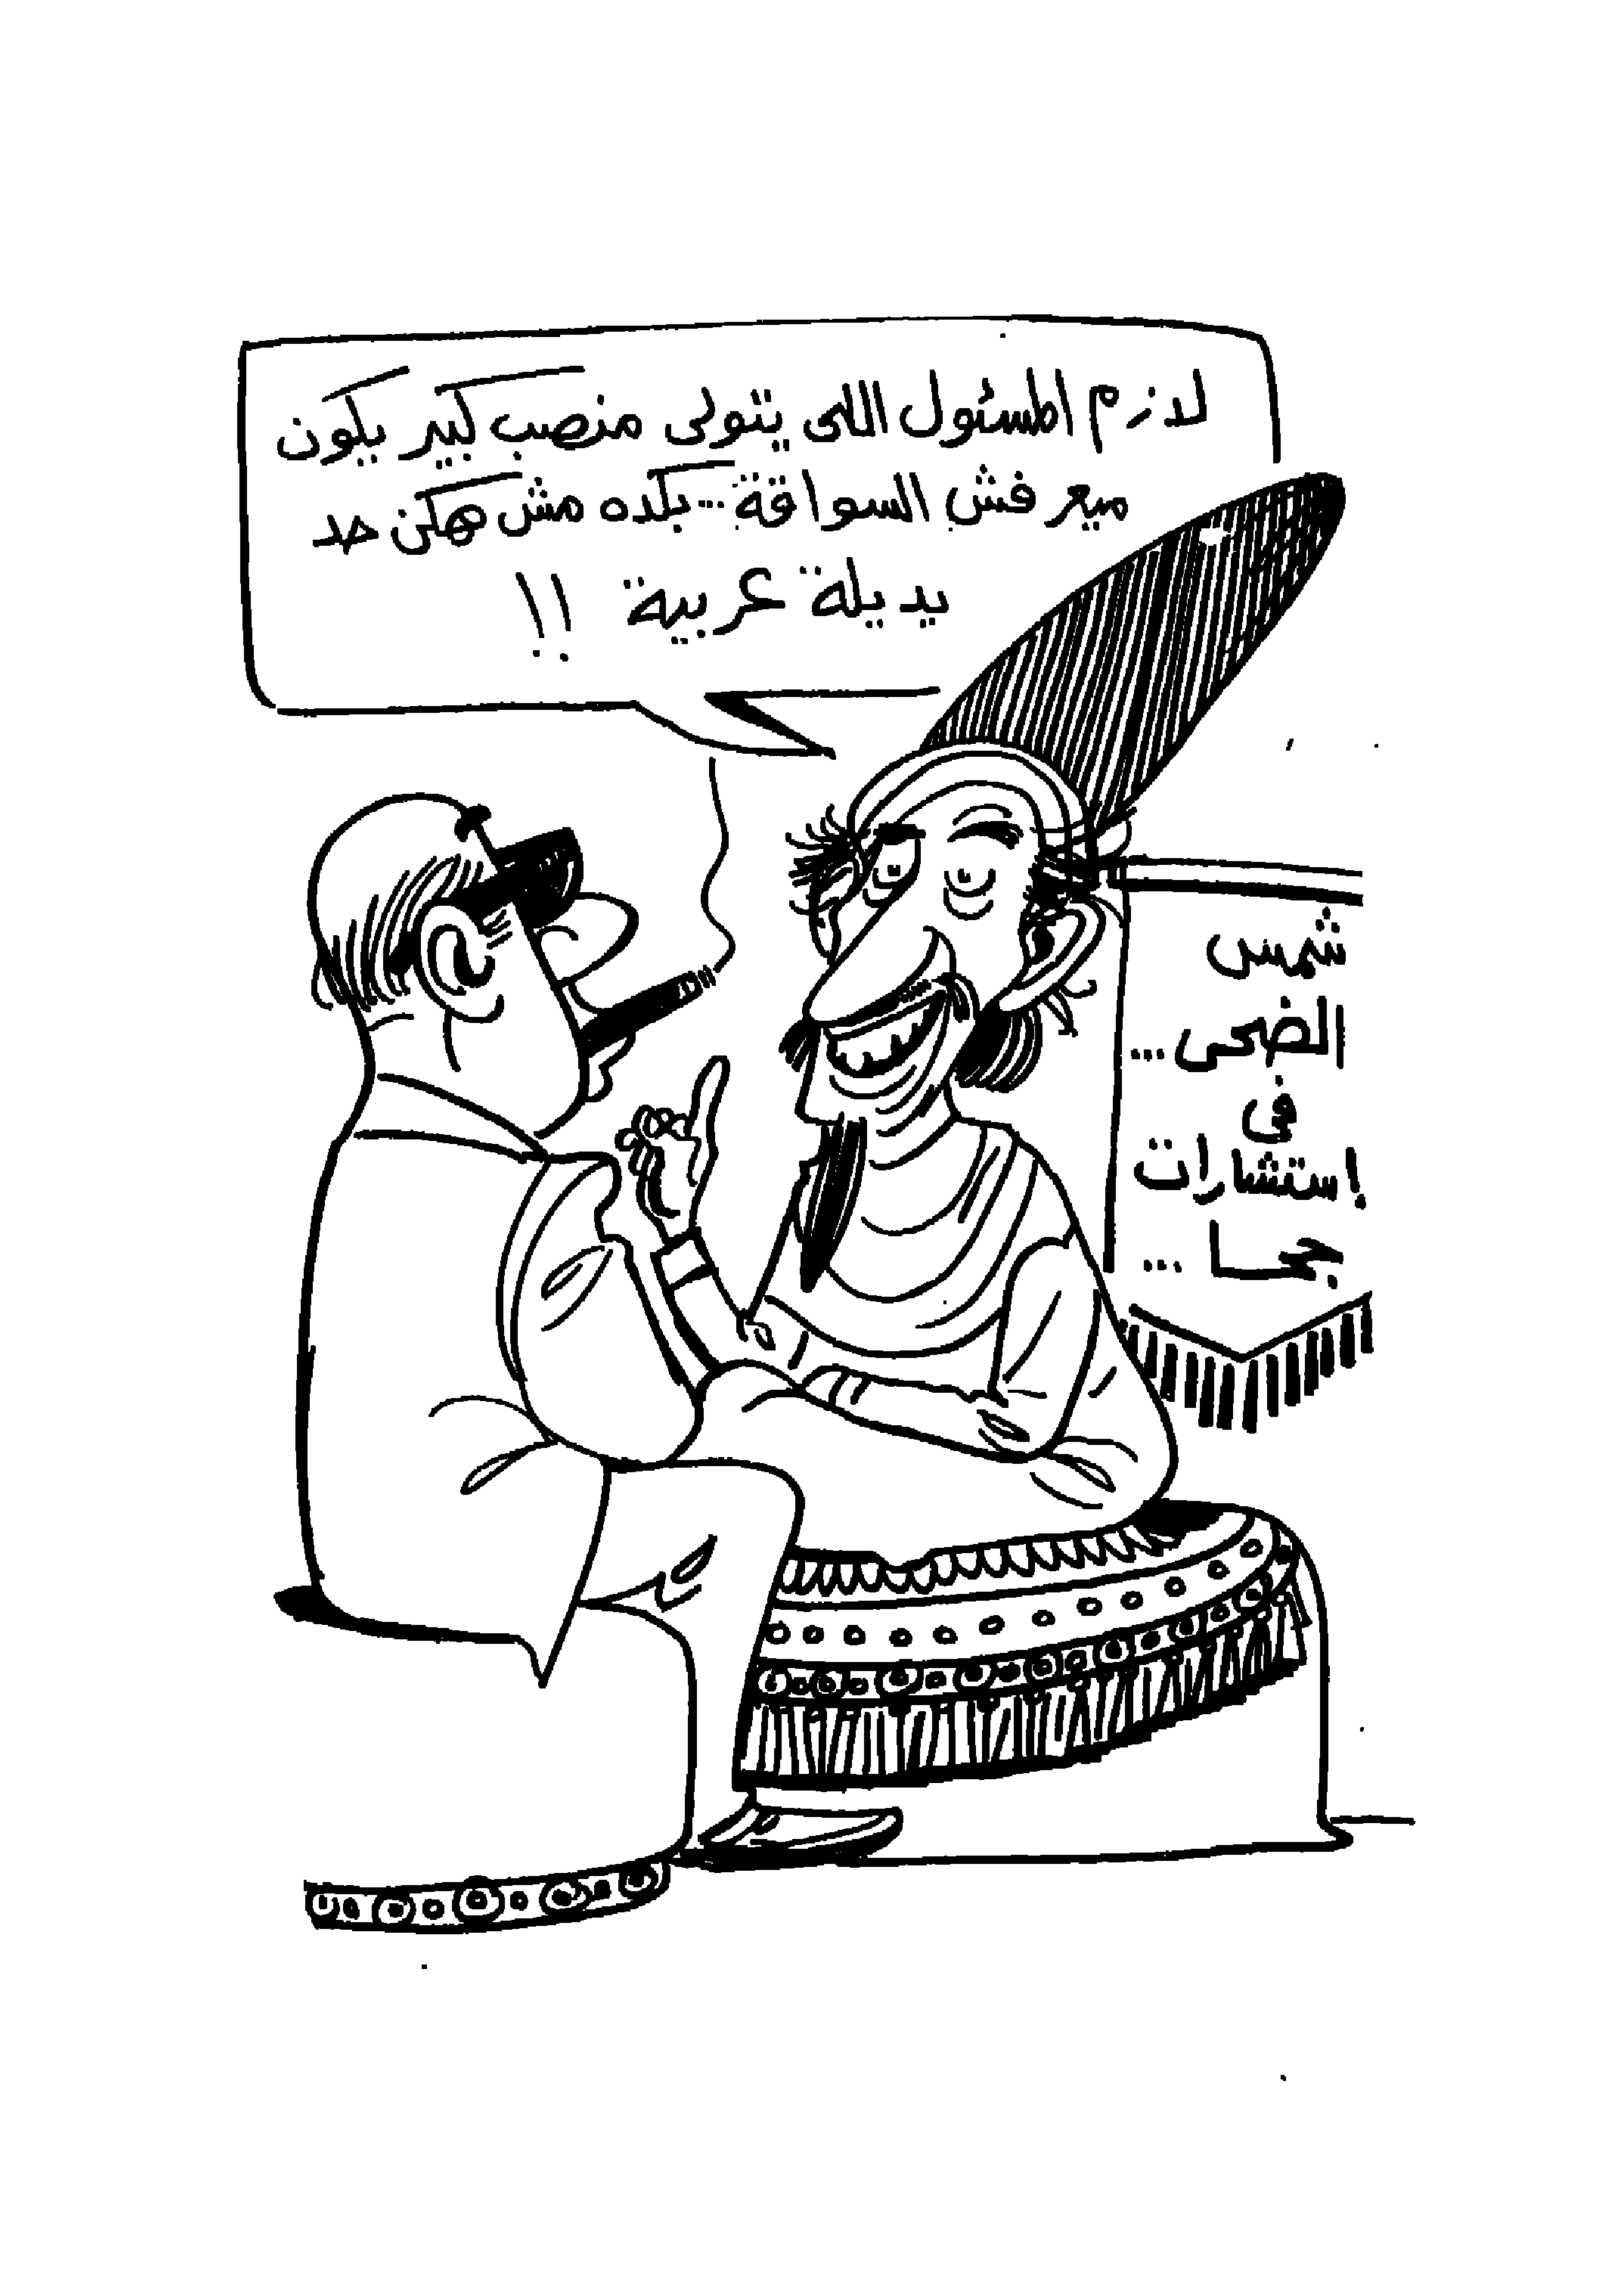 لازم المسئول اللى يتولى منصب كبير يكون
ميعرفش السواقة... بكده مش ممكن حد
يديلة عربية !!
شمس
الضحى...
فى
إستشارات
جحا...